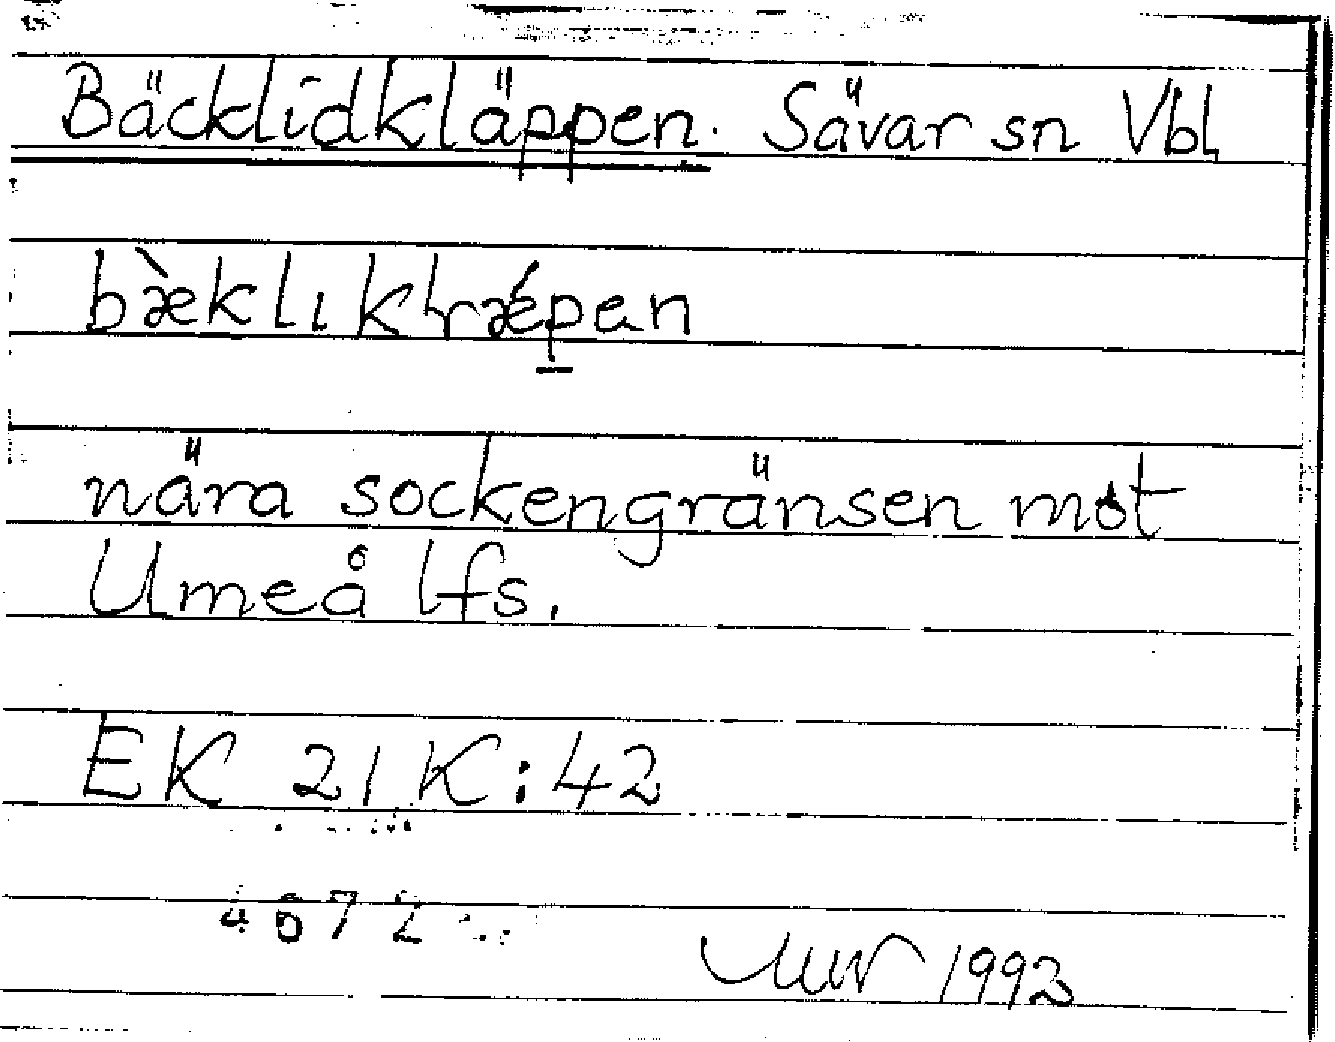 Bäcklidkläppen. Sävar sn Vbl
nära sockengränsen mot
Umeå lfs.
EK 21 K:42
1992